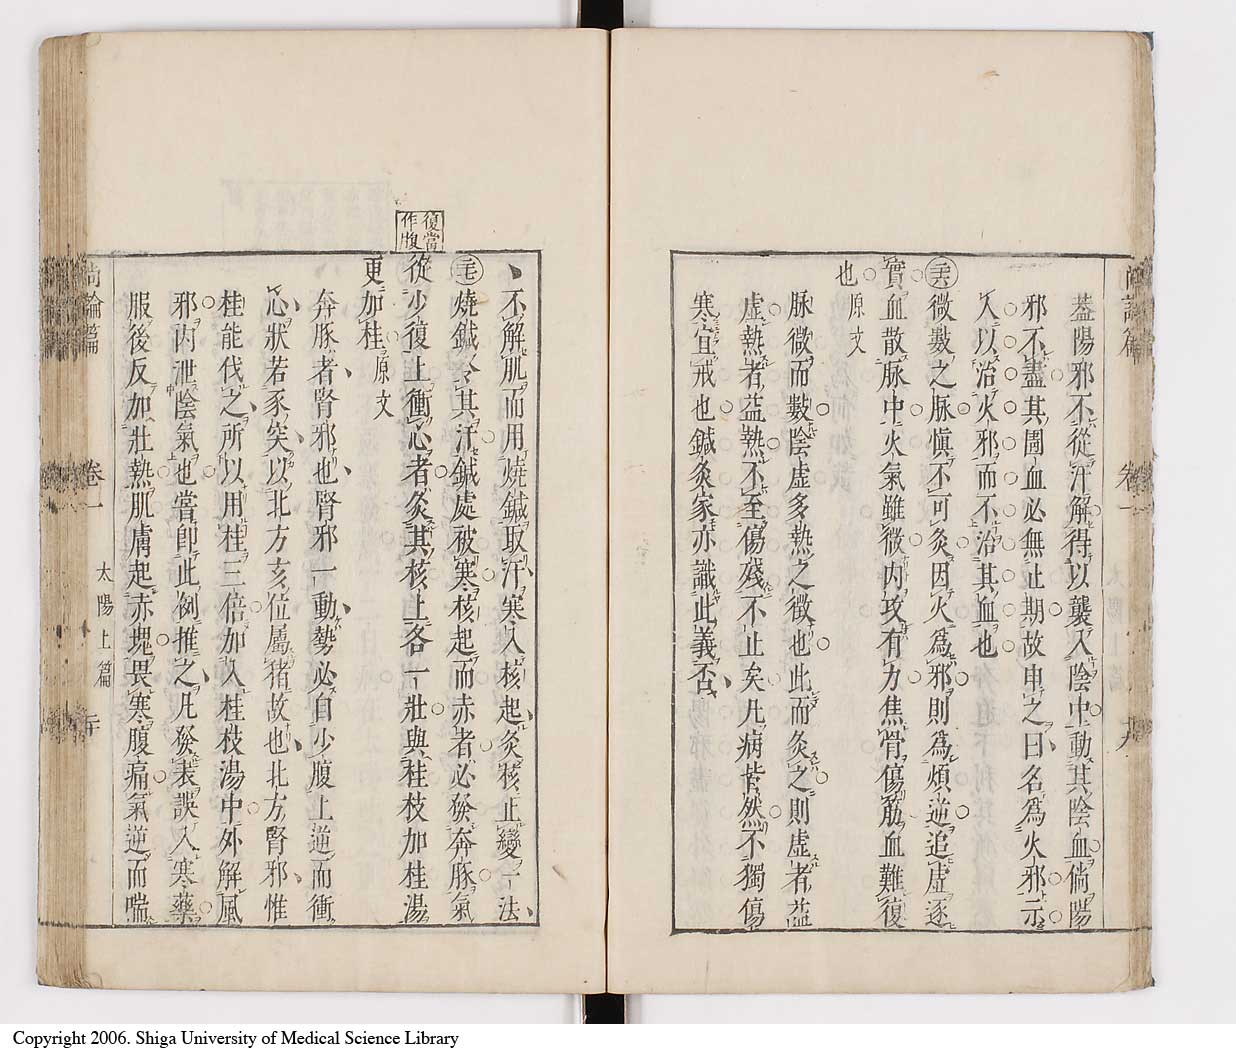 蓋陽邪不從汗解得以襲入陰中動其陰血倘陽
邪不盡其圊血必無止期故申之曰名爲火邪示
人以治火邪而不治其血也
㊱微數之脉愼不可灸因火爲邪則爲煩逆追虛逐
實血散脉中火氣雖微内攻有力焦骨傷筋血難復
也原文
脉微而數陰虛多熱之徵也此而灸之則虛者益
虛熱者益熱不至傷殘不止矣凡病皆然不獨傷
寒宜戒也鍼灸家亦識此義否
尚論篇
卷一
十九
、不解肌而用燒鍼取汗寒入核起灸核止變一法
㊲燒鍼令其汗鍼處被寒核起而赤者必發奔豚氣
復當
作腹
從少復上衝心者灸其核上各一壯與桂枝加桂湯
更加桂原文
奔豚者腎邪也腎邪一動勢必自少腹上逆而衝
心狀若豕突以北方亥位屬猪故也北方腎邪惟
桂能伐之所以用桂三倍加入桂枝湯中外解風
邪内泄陰氣也嘗卽此例推之凡發表誤入寒藥
服後反加壯熱肌膚起赤塊畏寒腹痛氣逆而喘
尚論篇
卷一
太陽上篇
二十
Copyright 2006. Shiga University of Medical Science Library